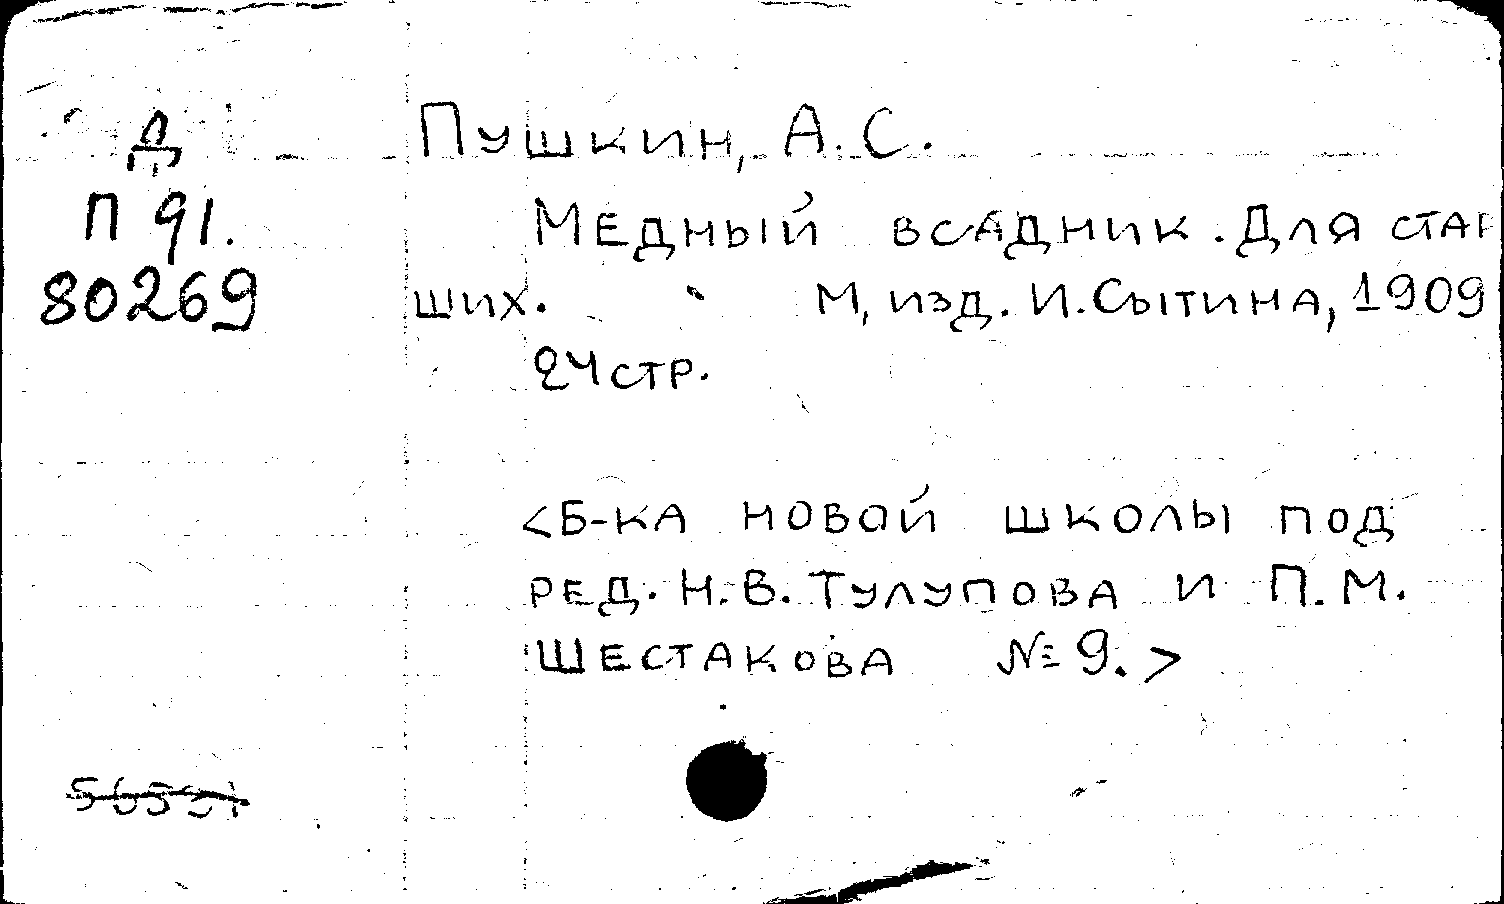 Д
Пушкин, А.С.
П 91.
Медный всадник. Для стар
80269
ших. М, изд. И. Сытина, 1909
24 стр.
<Б-ка новой школы под
ред. Н.В. Тулупова и П.М.
Шестакова № 9.>